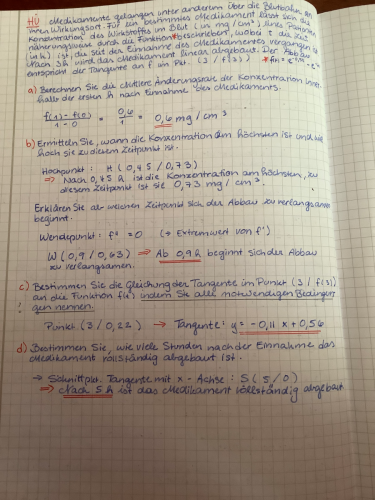 HÜ Medikamente gelangen unter anderem über die Blutbahn an
ihren Wirkungsort. Für ein bestimmtes Medikament lässt sich die
Konzentration des Wirkstoffs im Blut (in mg/cm³) eines Patienten
näherungsweise durch die Funktion * beschrieben, wobei t die Zeit
(in h) ist, die seit der Einnahme des Medikaments vergangen ist.
Nach 3h wird das Medikament linear abgebaut. Der Abbau
entspricht der Tangente an f um Pkt. (3 / f(3))
a) Berechnen Sie die mittlere Änderungsrate der Konzentration inner-
halb der ersten h nach Einnahme des Medikaments.
f(1) - f(0) / 1 - 0 = 0,6 / 1 = 0,6 mg / cm³
b) Ermitteln Sie, wann die Konzentration am höchsten ist und wie
hoch sie zu diesem Zeitpunkt ist.
Hochpunkt: H (0,45 / 0,73)
⇒ Nach 0,45 h ist die Konzentration am höchsten, zu
diesem Zeitpunkt ist sie 0,73 mg / cm³.
Erklären Sie ab welchen Zeitpunkt sich der Abbau zu verlangsamen
beginnt.
Wendepunkt: f'' = 0 (→ Extremwert von f')
W (0,9 / 0,63) ⇒ Ab 0,9 h beginnt sich der Abbau
zu verlangsamen.
c) Bestimmen Sie die Gleichung der Tangente im Punkt (3 / f(3))
an die Funktion f(x) indem Sie alle notwendigen Bedingun-
gen nennen.
Punkt (3 / 0,22) ⇒ Tangente: y = -0,11 x + 0,56
d) Bestimmen Sie, wie viele Stunden nach der Einnahme das
Medikament vollständig abgebaut ist.
→ Schnittpkt. Tangente mit x-Achse: S (5 / 0)
⇒ Nach 5 h ist das Medikament vollständig abgebaut